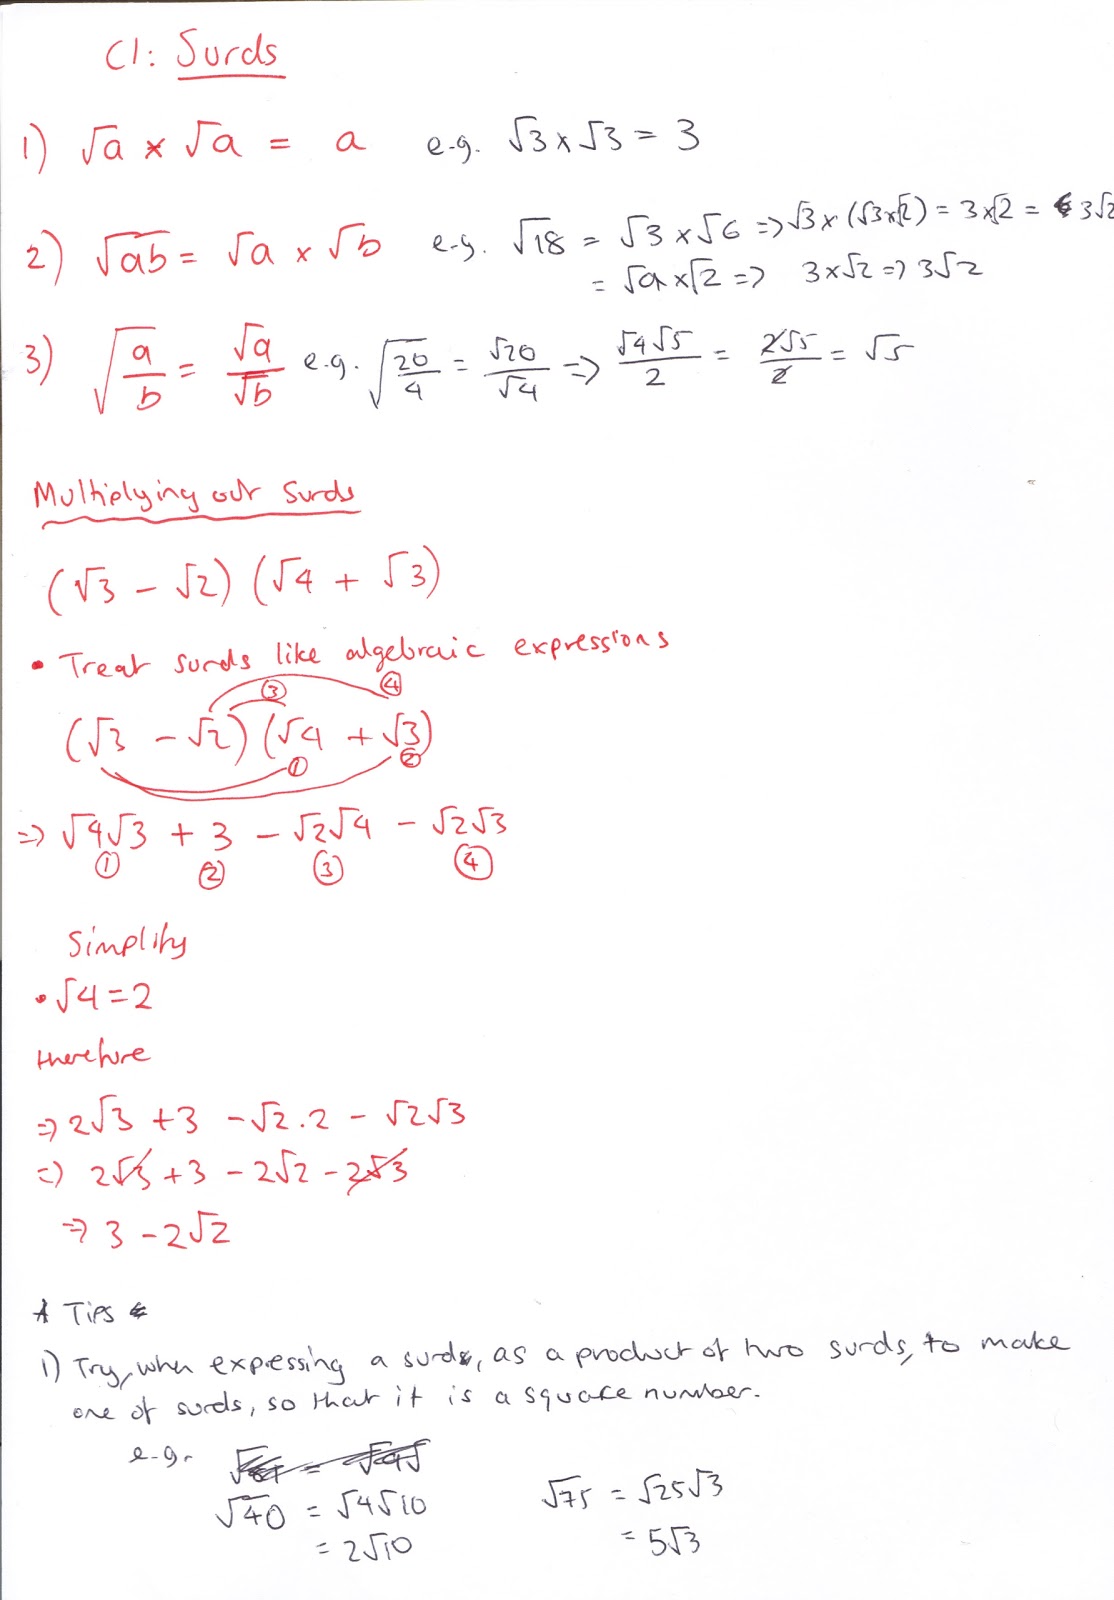 C1: Surds
1) √a × √a = a e.g. √3 × √3 = 3
2) √ab = √a × √b e.g. √18 = √3 × √6 => √3 × (√3×√2) = 3×√2 = 3√2
= √9 × √2 => 3×√2 => 3√2
3) √(a/b) = √a/√b e.g. √(20/4) = √20/√4 => √4√5/2 = 2√5/2 = √5
Multiplying out Surds
(√3 - √2) (√4 + √3)
• Treat surds like algebraic expressions
③ ④
(√3 - √2) (√4 + √3)
① ②
=> √4√3 + 3 - √2√4 - √2√3
① ② ③ ④
Simplify
• √4 = 2
therefore
=> 2√3 + 3 - √2.2 - √2√3
=> 2√3 + 3 - 2√2 - 2√3
=> 3 - 2√2
* Tips *
1) Try, when expressing a surds, as a product of two surds, to make
one of surds, so that it is a square number.
e.g.
√40 = √4√10 √75 = √25√3
= 2√10 = 5√3